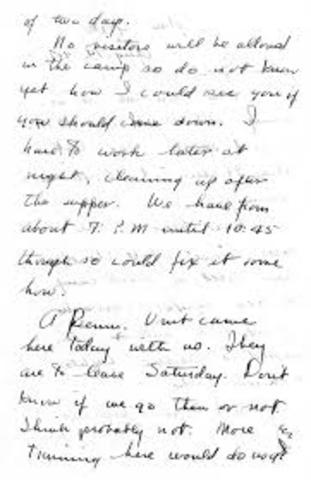 of two days.
No visitors will be allowed
in the camp so do not know
yet how I could see you if
you should come down. I
have to work later at
night, cleaning up after
the supper. We have from
about 7. P.M until 10:45
though so could fix it some
how.
A Penn. Unit came
here today with us. They
are to leave Saturday. Don't
know if we go then or not.
I think probably not. More
training here would do us